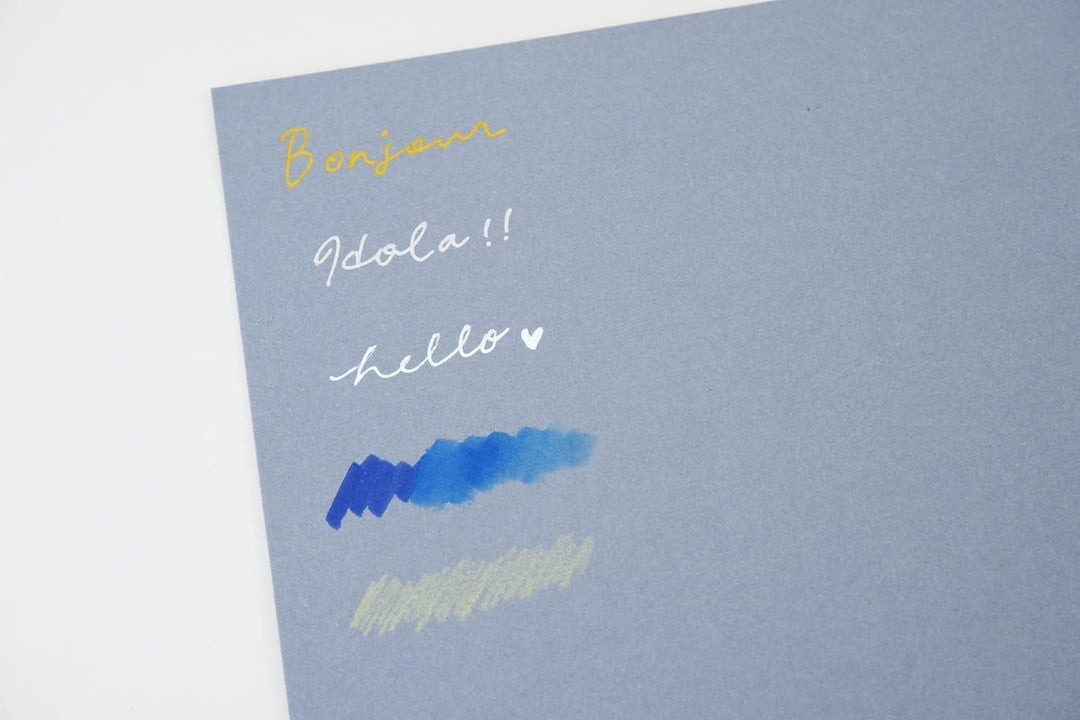 Bonjour
Idola!!
hello♥